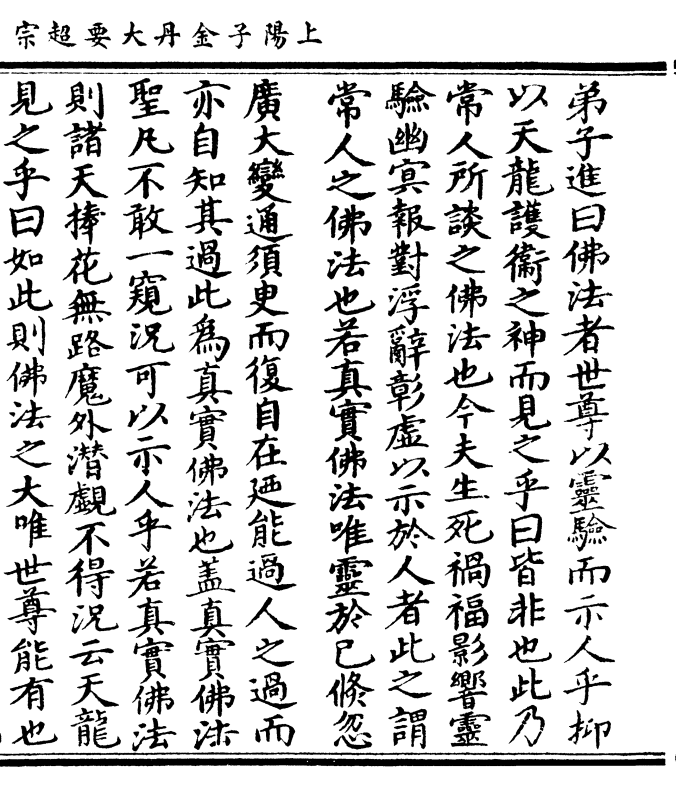 上陽子金丹大要超宗
弟子進曰佛法者世尊以靈驗而示人乎抑
以天龍護衞之神而見之乎曰皆非也此乃
常人所談之佛法也今夫生死禍福影響靈
驗幽冥報對浮辭彰虛以示於人者此之謂
常人之佛法也若真實佛法唯靈於己倐忽
廣大變通須臾而復自在廼能過人之過而
亦自知其過此爲真實佛法也盖真實佛法
聖凡不敢一窺況可以示人乎若真實佛法
則諸天捧花無路魔外潛覷不得況云天龍
見之乎曰如此則佛法之大唯世尊能有也